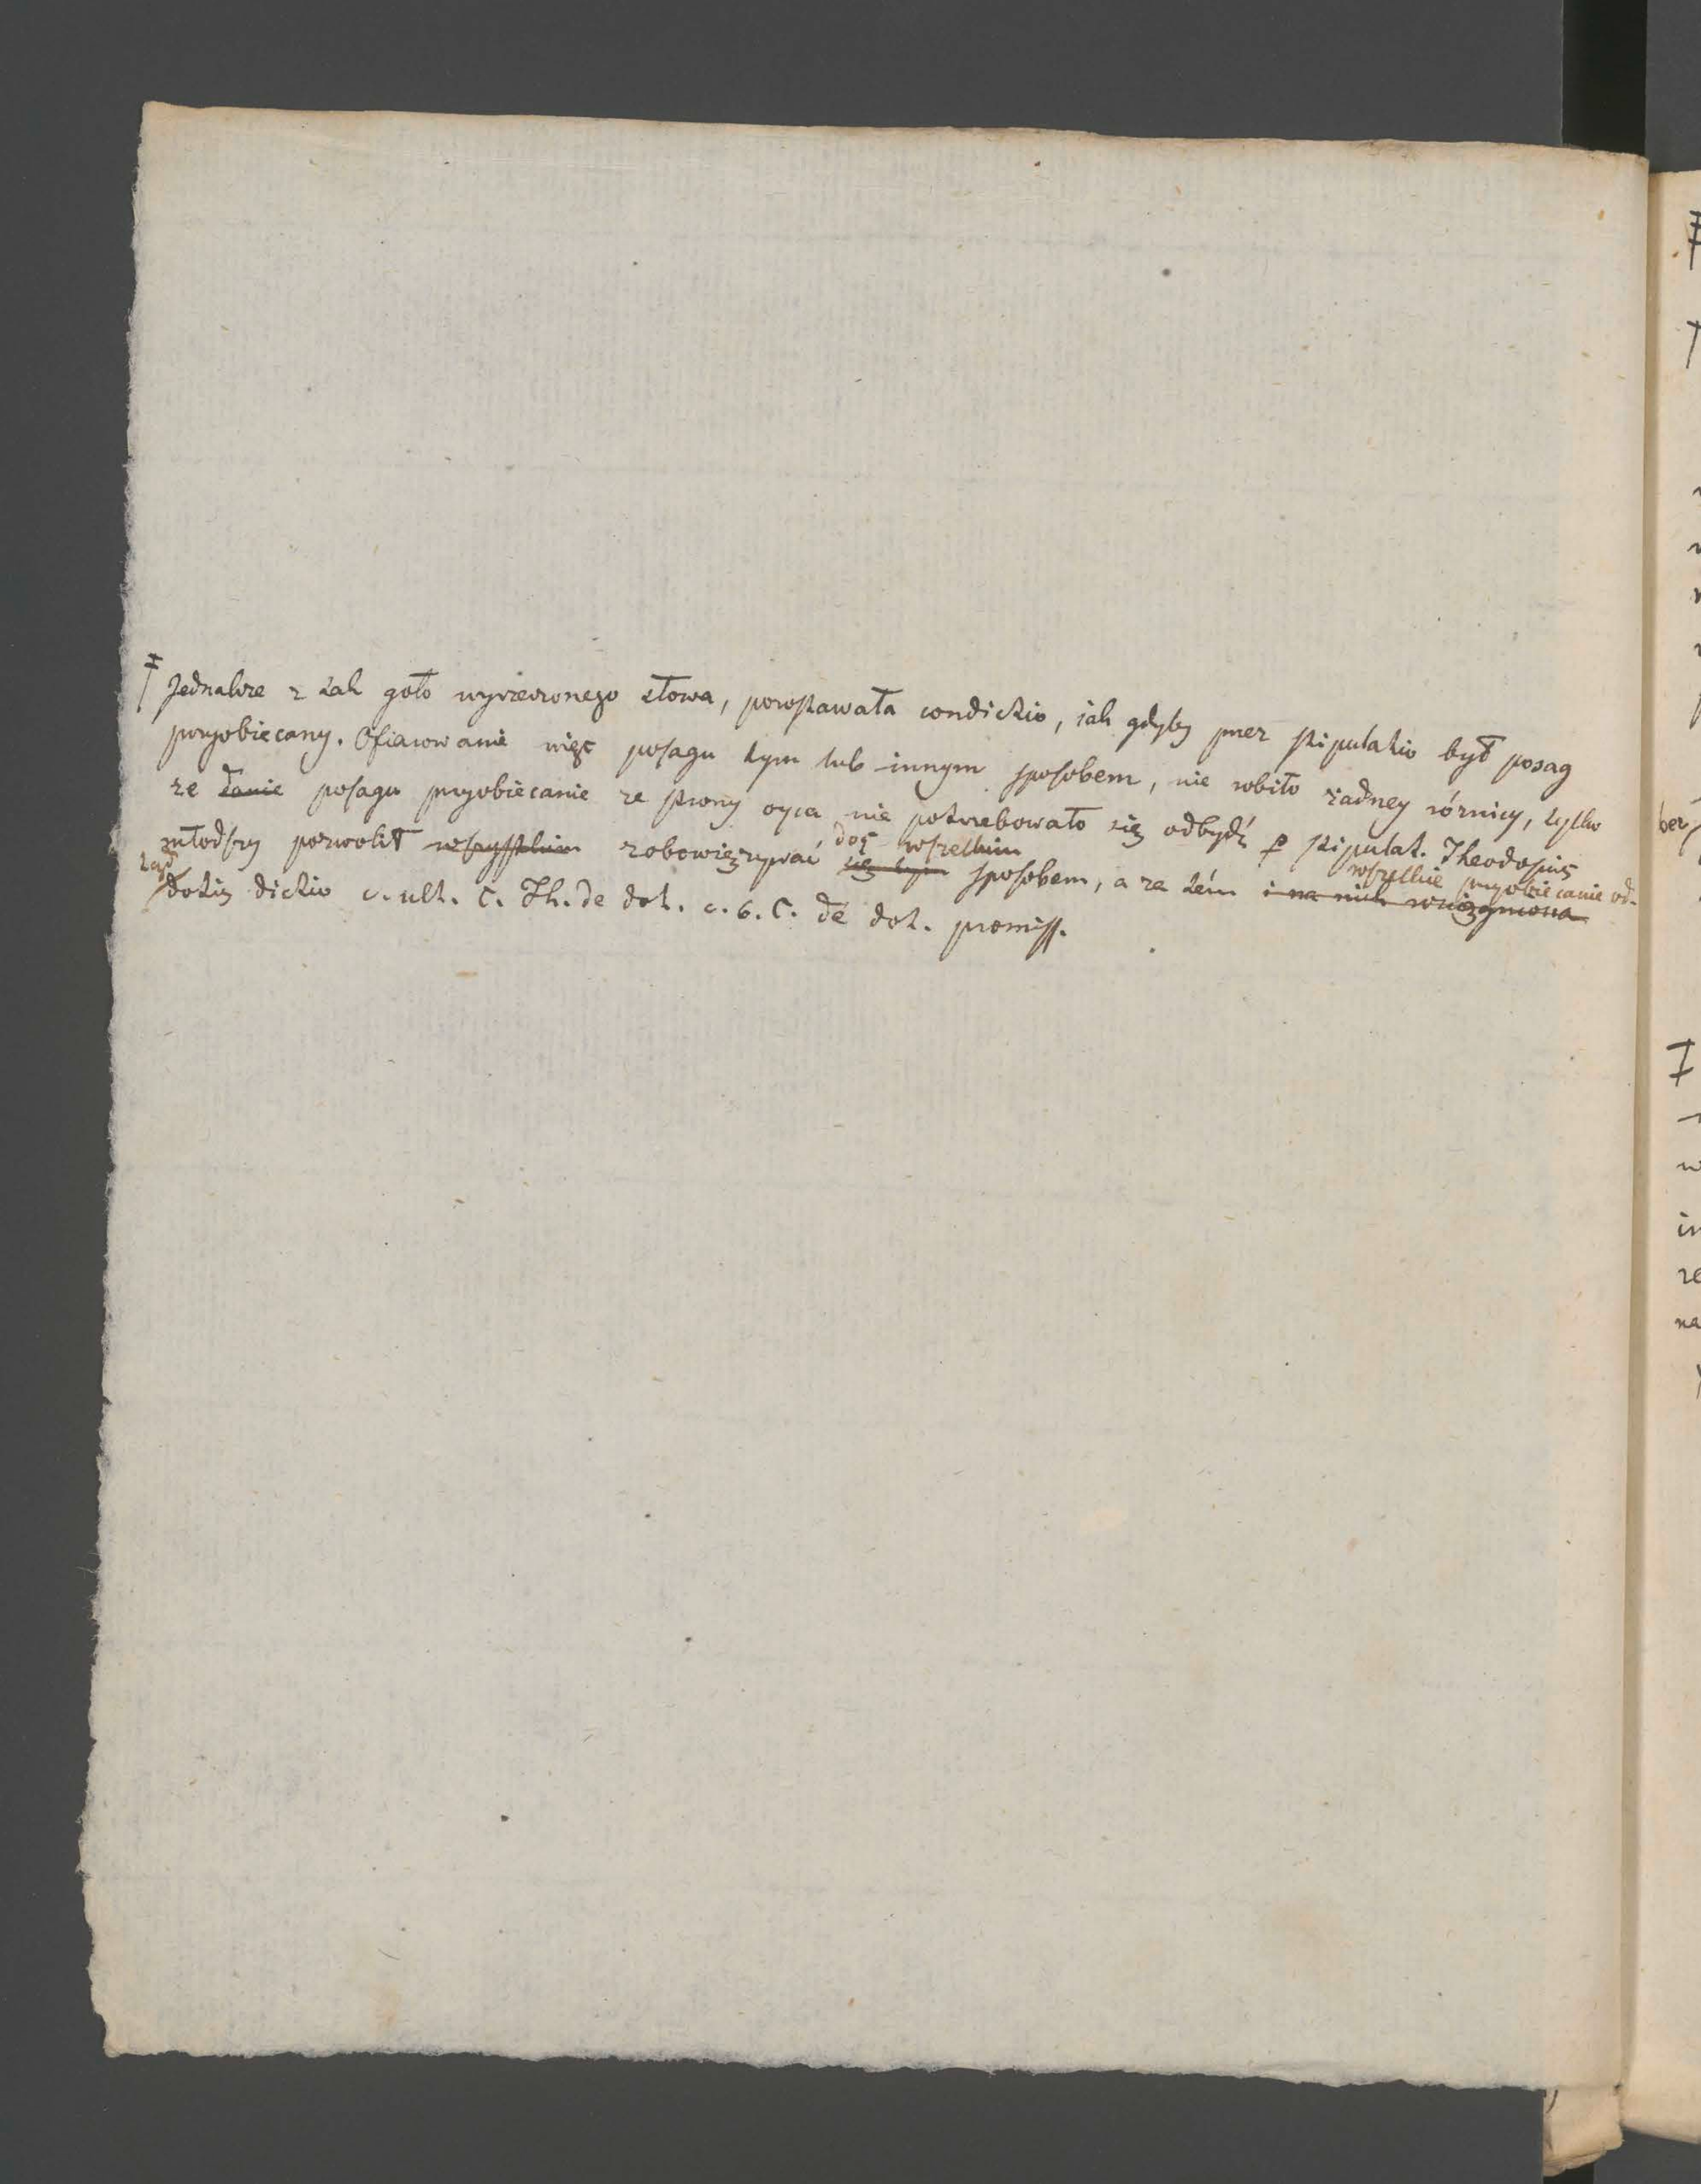 ‡ Jednakże z tak goło wyrzeczonego słowa, powstawała condictio, iak gdyby przez stipulatio był posag
przyobiecany. Ofiarowanie więc posagu tym lub innym sposobem, nie robiło żadney różnicy, tylko
że danie posagu przyobiecanie ze strony oyca nie potrzebowało się odbydź p stipulat. Theodosius
młodszy pozwolił wszystkim zobowięzywać się tym dos wszelkim sposobem, a za tém i na nich wsciągniona wszelkie przyobiecanie od-
tąd dotis dictio c. ult. C. Th. de dot. c. 6. C. de dot. promiss.
ber
in
ze
na